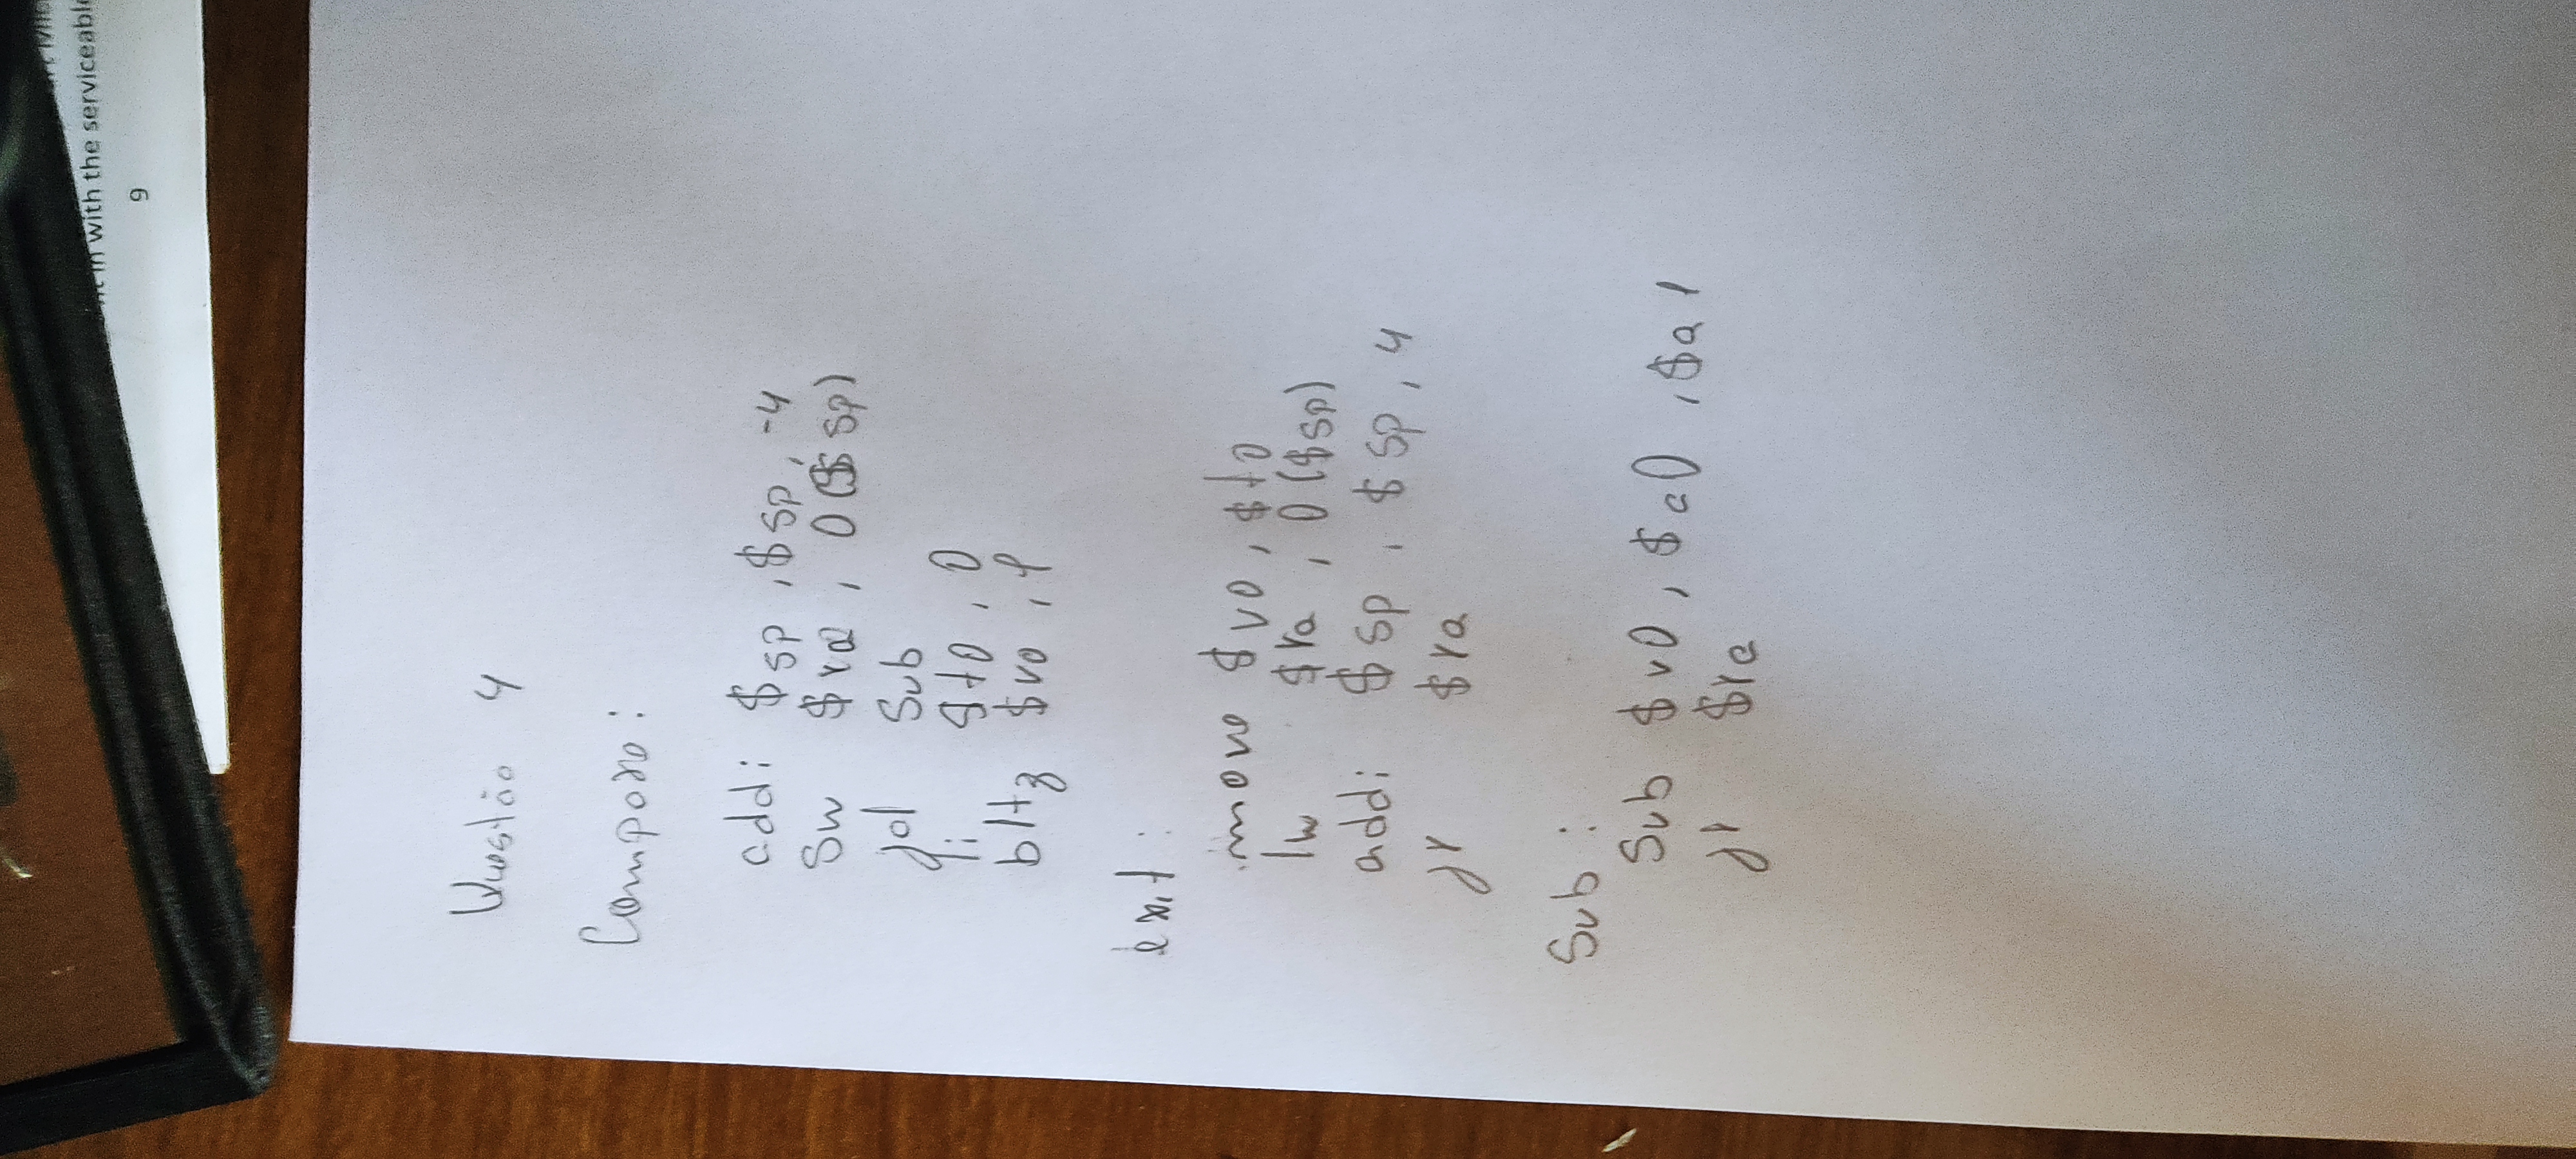 in with the serviceable
9
Questão 4
Compara:
addi $sp, $sp, -4
sw $ra, 0($sp)
jal Sub
li $t0, 0
bltz $v0, 1
exit:
move $v0, $t0
lw $ra, 0($sp)
addi $sp, $sp, 4
jr $ra
Sub:
Sub $v0, $a0, $a1
jr $ra